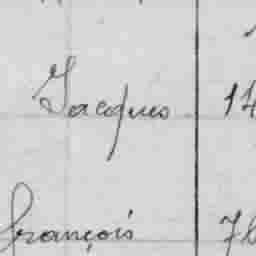 Jacques 14
François 76